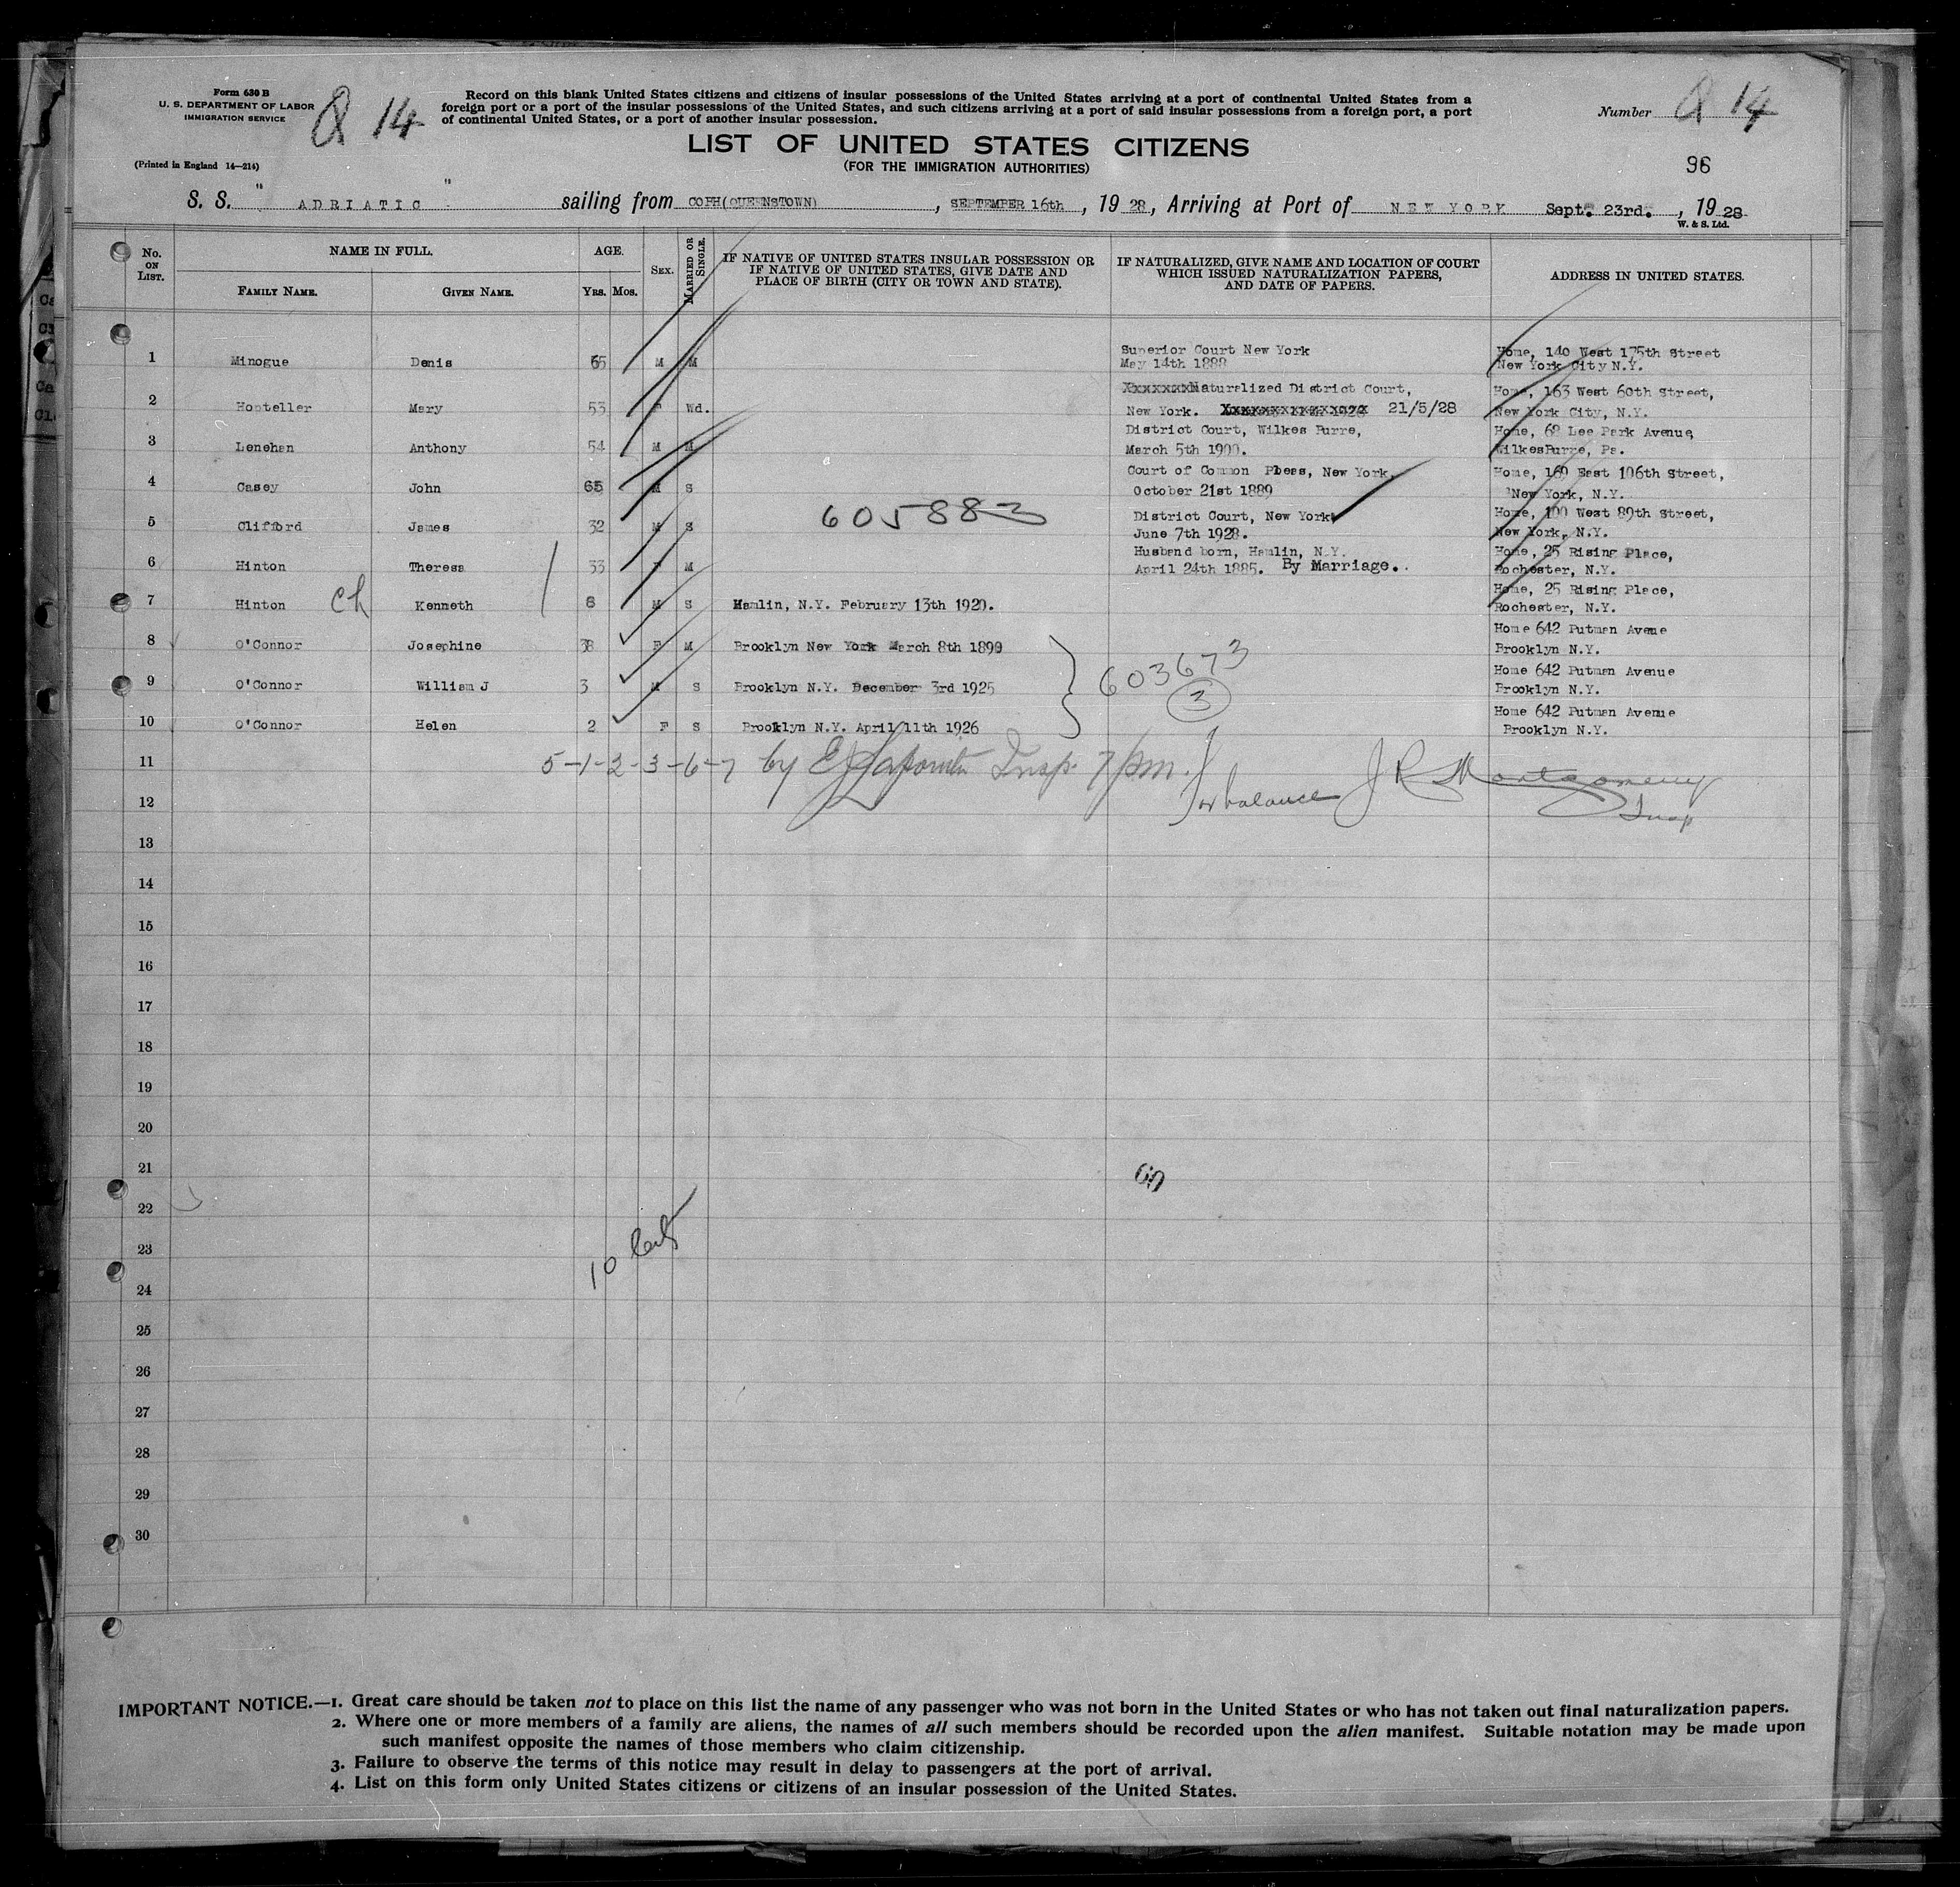 Form 630 B
U. S. DEPARTMENT OF LABOR
IMMIGRATION SERVICE
Q 14
(Printed in England 14—214)
Record on this blank United States citizens and citizens of insular possessions of the United States arriving at a port of continental United States from a
foreign port or a port of the insular possessions of the United States, and such citizens arriving at a port of said insular possessions from a foreign port, a port
of continental United States, or a port of another insular possession.
Number Q 14
LIST OF UNITED STATES CITIZENS
(FOR THE IMMIGRATION AUTHORITIES)
96
S. S. "ADRIATIC" sailing from COBH(QUEENSTOWN), SEPTEMBER 16th, 1928, Arriving at Port of NEW YORK Sept. 23rd., 1928
W. & S. Ltd.
No. ON LIST. NAME IN FULL. FAMILY NAME. GIVEN NAME. AGE. YRS. MOS. SEX. MARRIED OR SINGLE. IF NATIVE OF UNITED STATES INSULAR POSSESSION OR IF NATIVE OF UNITED STATES, GIVE DATE AND PLACE OF BIRTH (CITY OR TOWN AND STATE). IF NATURALIZED, GIVE NAME AND LOCATION OF COURT WHICH ISSUED NATURALIZATION PAPERS, AND DATE OF PAPERS. ADDRESS IN UNITED STATES.
1 Minogue Denis M M Superior Court New York May 14th 1888 Home, 140 West 175th Street New York City N.Y.
2 Mary 53 F Wd. Naturalized District Court, New York. 21/5/28 Home, 163 West 60th Street, New York City, N.Y.
3 Lenehan Anthony 54 M M District Court, Wilkes Burre, March 5th 1900. Home, 68 Lee Park Avenue, WilkesBurre, Pa.
4 Casey John 65 M S Court of Common Pleas, New York, October 21st 1889 Home, 169 East 106th Street, New York, N.Y.
5 Clifford James 32 M S 605883 District Court, New York June 7th 1928. Home, 100 West 89th Street, New York, N.Y.
6 Hinton Theresa 33 F M Husband born, Hamlin, N.Y. April 24th 1885. By Marriage. Home, 25 Rising Place, Rochester, N.Y.
7 Hinton ch Kenneth 8 M S Hamlin, N.Y. February 13th 1920. Home, 25 Rising Place, Rochester, N.Y.
8 O'Connor Josephine F M Brooklyn New York March 8th 1890 Home 642 Putman Avenue Brooklyn N.Y.
9 O'Connor William J 3 M S Brooklyn N.Y. December 3rd 1925 603673 3 Home 642 Putman Avenue Brooklyn N.Y.
10 O'Connor Helen 2 F S Brooklyn N.Y. April 11th 1926 Home 642 Putman Avenue Brooklyn N.Y.
11 5-1-2-3-6-7 by Insp. 7/pm. J R Montgomery
12 for balance Insp
13
14
15
16
17
18
19
20
21 60
22
23 10
24
25
26
27
28
29
30
IMPORTANT NOTICE.—1. Great care should be taken not to place on this list the name of any passenger who was not born in the United States or who has not taken out final naturalization papers.
2. Where one or more members of a family are aliens, the names of all such members should be recorded upon the alien manifest. Suitable notation may be made upon
such manifest opposite the names of those members who claim citizenship.
3. Failure to observe the terms of this notice may result in delay to passengers at the port of arrival.
4. List on this form only United States citizens or citizens of an insular possession of the United States.